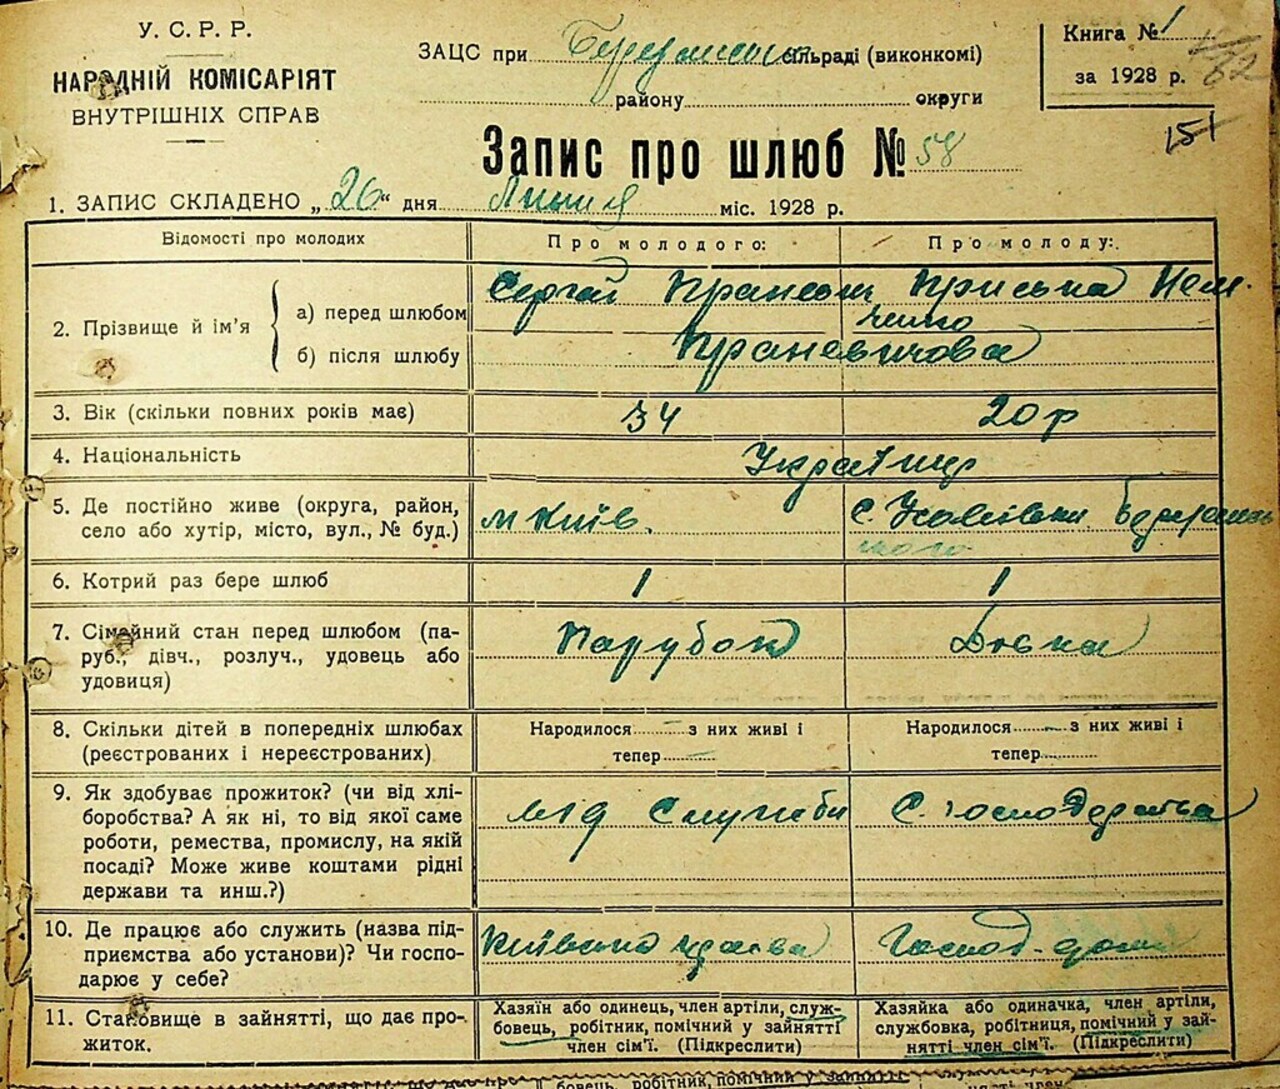 У. С. Р. Р.
НАРОДНІЙ КОМІСАРІЯТ
ВНУТРІШНІХ СПРАВ
ЗАЦС при сільраді (виконкомі)
району округи
Книга № 1
за 1928 р.
151
Запис про шлюб № 58
1. ЗАПИС СКЛАДЕНО „26“ дня Липня міс. 1928 р.
Відомості про молодих Про молодого: Про молоду:
2. Прізвище й ім’я
а) перед шлюбом Сергій Приська Нем-
ченко
б) після шлюбу Праневичова
3. Вік (скільки повних років має) 34 20 р
4. Національність
5. Де постійно живе (округа, район,
село або хутір, місто, вул., № буд.) м Київ. с.
6. Котрий раз бере шлюб 1 1
7. Сімейний стан перед шлюбом (па-
руб., дівч., розлуч., удовець або
удовиця) Парубок Дівка
8. Скільки дітей в попередніх шлюбах
(реєстрованих і нереєстрованих)
Народилося з них живі і
тепер
Народилося з них живі і
тепер
9. Як здобуває прожиток? (чи від хлі-
боробства? А як ні, то від якої саме
роботи, ремества, промислу, на якій
посаді? Може живе коштами рідні
держави та инш.?) Служби С. господарства
10. Де працює або служить (назва під-
приємства або установи)? Чи госпо-
дарює у себе?
11. Становище в зайнятті, що дає про-
житок.
Хазяїн або одинець, член артіли, служ-
бовець, робітник, помічний у зайнятті
член сім’ї. (Підкреслити)
Хазяйка або одиначка, член артіли,
службовка, робітниця, помічний у зай-
нятті член сім’ї. (Підкреслити)
бовець, робітник, помічний у зайнятті